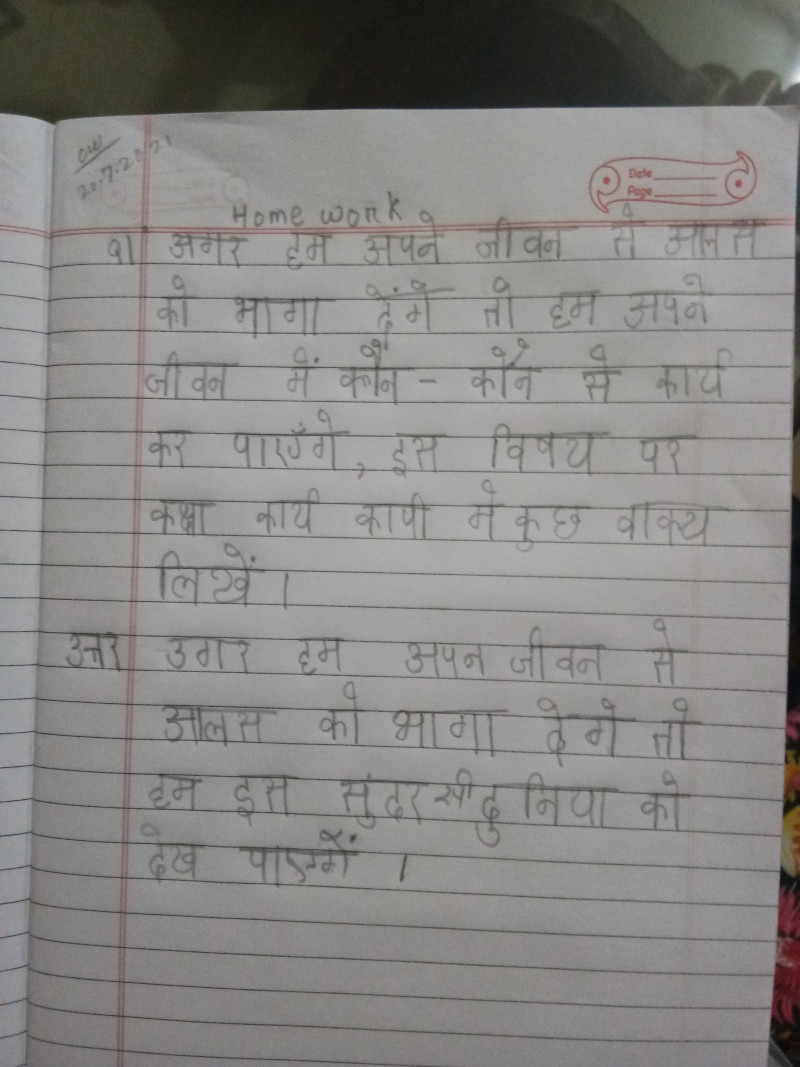 cw
20.7.2021
Date
Page
Home work
१) अगर हम अपने जीवन से आलस
को भागा देंगे तो हम अपने
जीवन में कौन - कौन से कार्य
कर पाएँगे, इस विषय पर
कक्षा कार्य कापी मे कुछ वाक्य
लिखें ।
उत्तर उगर हम अपन जीवन से
आलस को भागा देगे तो
हम इस सुंदर सी दुनिया को
देख पाएगें ।